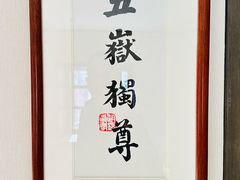 五嶽獨尊